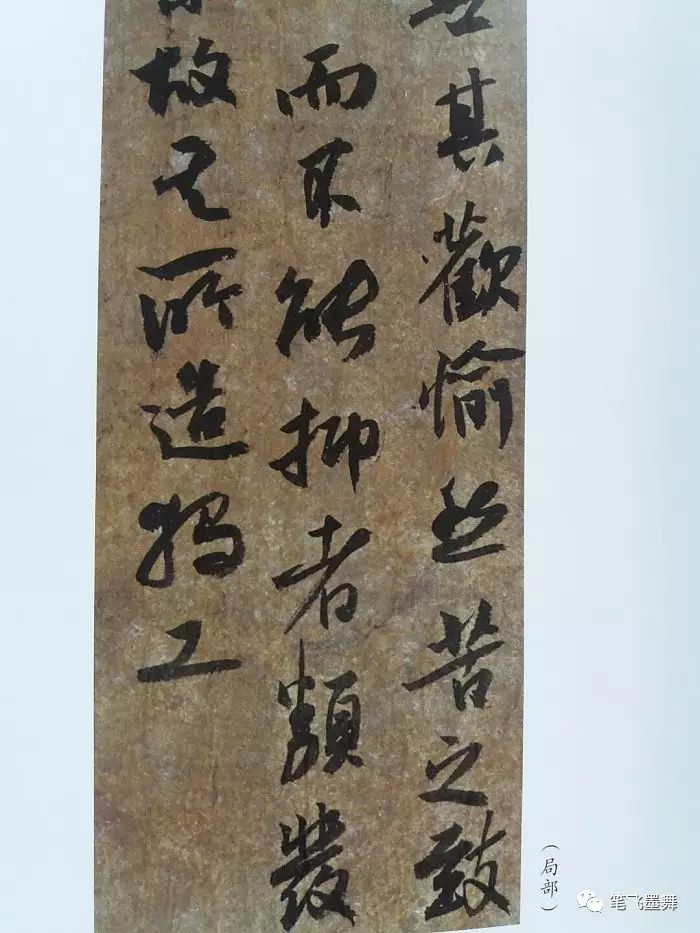 其歡愉愁苦之致
而不能抑者類發
故其所造獨工
（局部）
笔飞墨舞